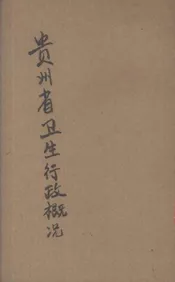 贵州省卫生行政概况